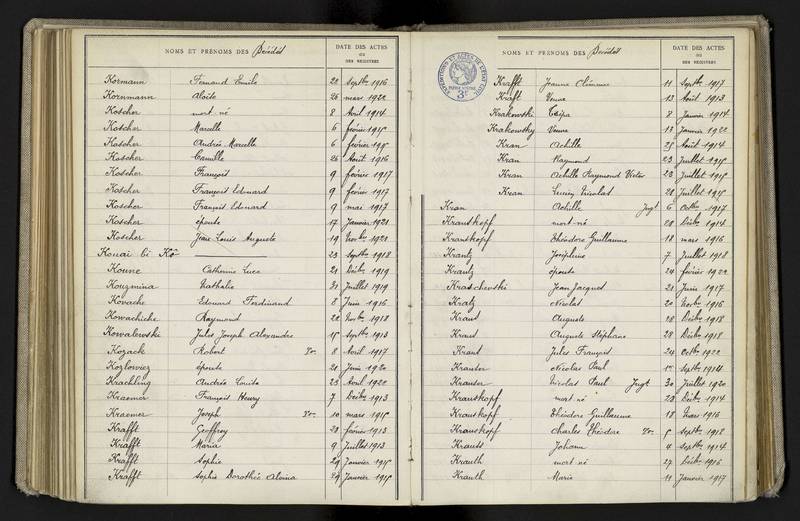 NOMS ET PRÉNOMS DES Décédés
DATE DES ACTES
OU
DES REGISTRES
Kormann Fernand Emile 20 Septbre 1916
Kornmann Aloïse 26 mars 1922
Koscher mort né 8 Avril 1914
Koscher Marcelle 6 février 1915
Koscher Andrée Marcelle 6 février 1915
Koscher Camille 26 Août 1916
Koscher François 9 février 1917
Koscher François Edouard 9 février 1917
Koscher François Edouard 9 mai 1917
Koscher épouse 17 Janvier 1921
Koscher Jean Louis Auguste 19 Novbre 1921
Kouai bi Kô 23 Septbre 1918
Koune Catherine Luce 21 Décbre 1919
Kouzmina Nathalie 31 Juillet 1919
Kovache Edouard Ferdinand 8 Juin 1916
Kowachiche Raymond 22 Novbre 1918
Kowalewski Jules Joseph Alexandre 15 Septbre 1913
Kozack Robert 8 Avril 1917
Kozlowiez épouse 21 Juin 1920
Krachling Andrée Louise 23 Avril 1920
Kraemer François Henry 7 Décbre 1913
Kraemer Joseph 10 mars 1915
Krafft Geoffroy 20 février 1913
Krafft Maria 9 Juillet 1913
Krafft Sophie 29 Janvier 1915
Krafft Sophie Dorothée Alvina 29 Janvier 1915
NOMS ET PRÉNOMS DES Décédés
DATE DES ACTES
OU
DES REGISTRES
Krafft Jeanne Clémence 11 Septbre 1917
Kraft Veuve 13 Août 1913
Krakowski 8 Janvier 1914
Krakowsky Veuve 18 Janvier 1922
Kran Achille 25 Août 1914
Kran Raymond 23 Juillet 1915
Kran Achille Raymond Victor 23 Juillet 1915
Kran Lucien Nicolas 28 Juillet 1915
Kran Achille Jugt 6 Octbre 1917
Kranskopf mort né 28 Décbre 1914
Kranskopf Théodore Guillaume 18 mars 1916
Krantz Joséphine 7 Juillet 1918
Krantz épouse 24 février 1922
Kraschevski Jean Jacques 21 Juin 1917
Kratz Nicolas 20 Novbre 1916
Kraus Auguste 28 Décbre 1918
Kraus Auguste Stéphane 28 Décbre 1918
Kraus Jules François 24 Octbre 1922
Krauser Nicolas Paul Septbre 1914
Krauser Nicolas Paul Jugt 30 Juillet 1920
Krauskopf mort né 28 Décbre 1914
Krauskopf Théodore Guillaume 18 Mars 1916
Krauskopf Charles Théodore 5 Septbre 1918
Krauss Johann 4 Septbre 1914
Krauth mort né 27 Décbre 1916
Krauth Marie 11 Janvier 1917